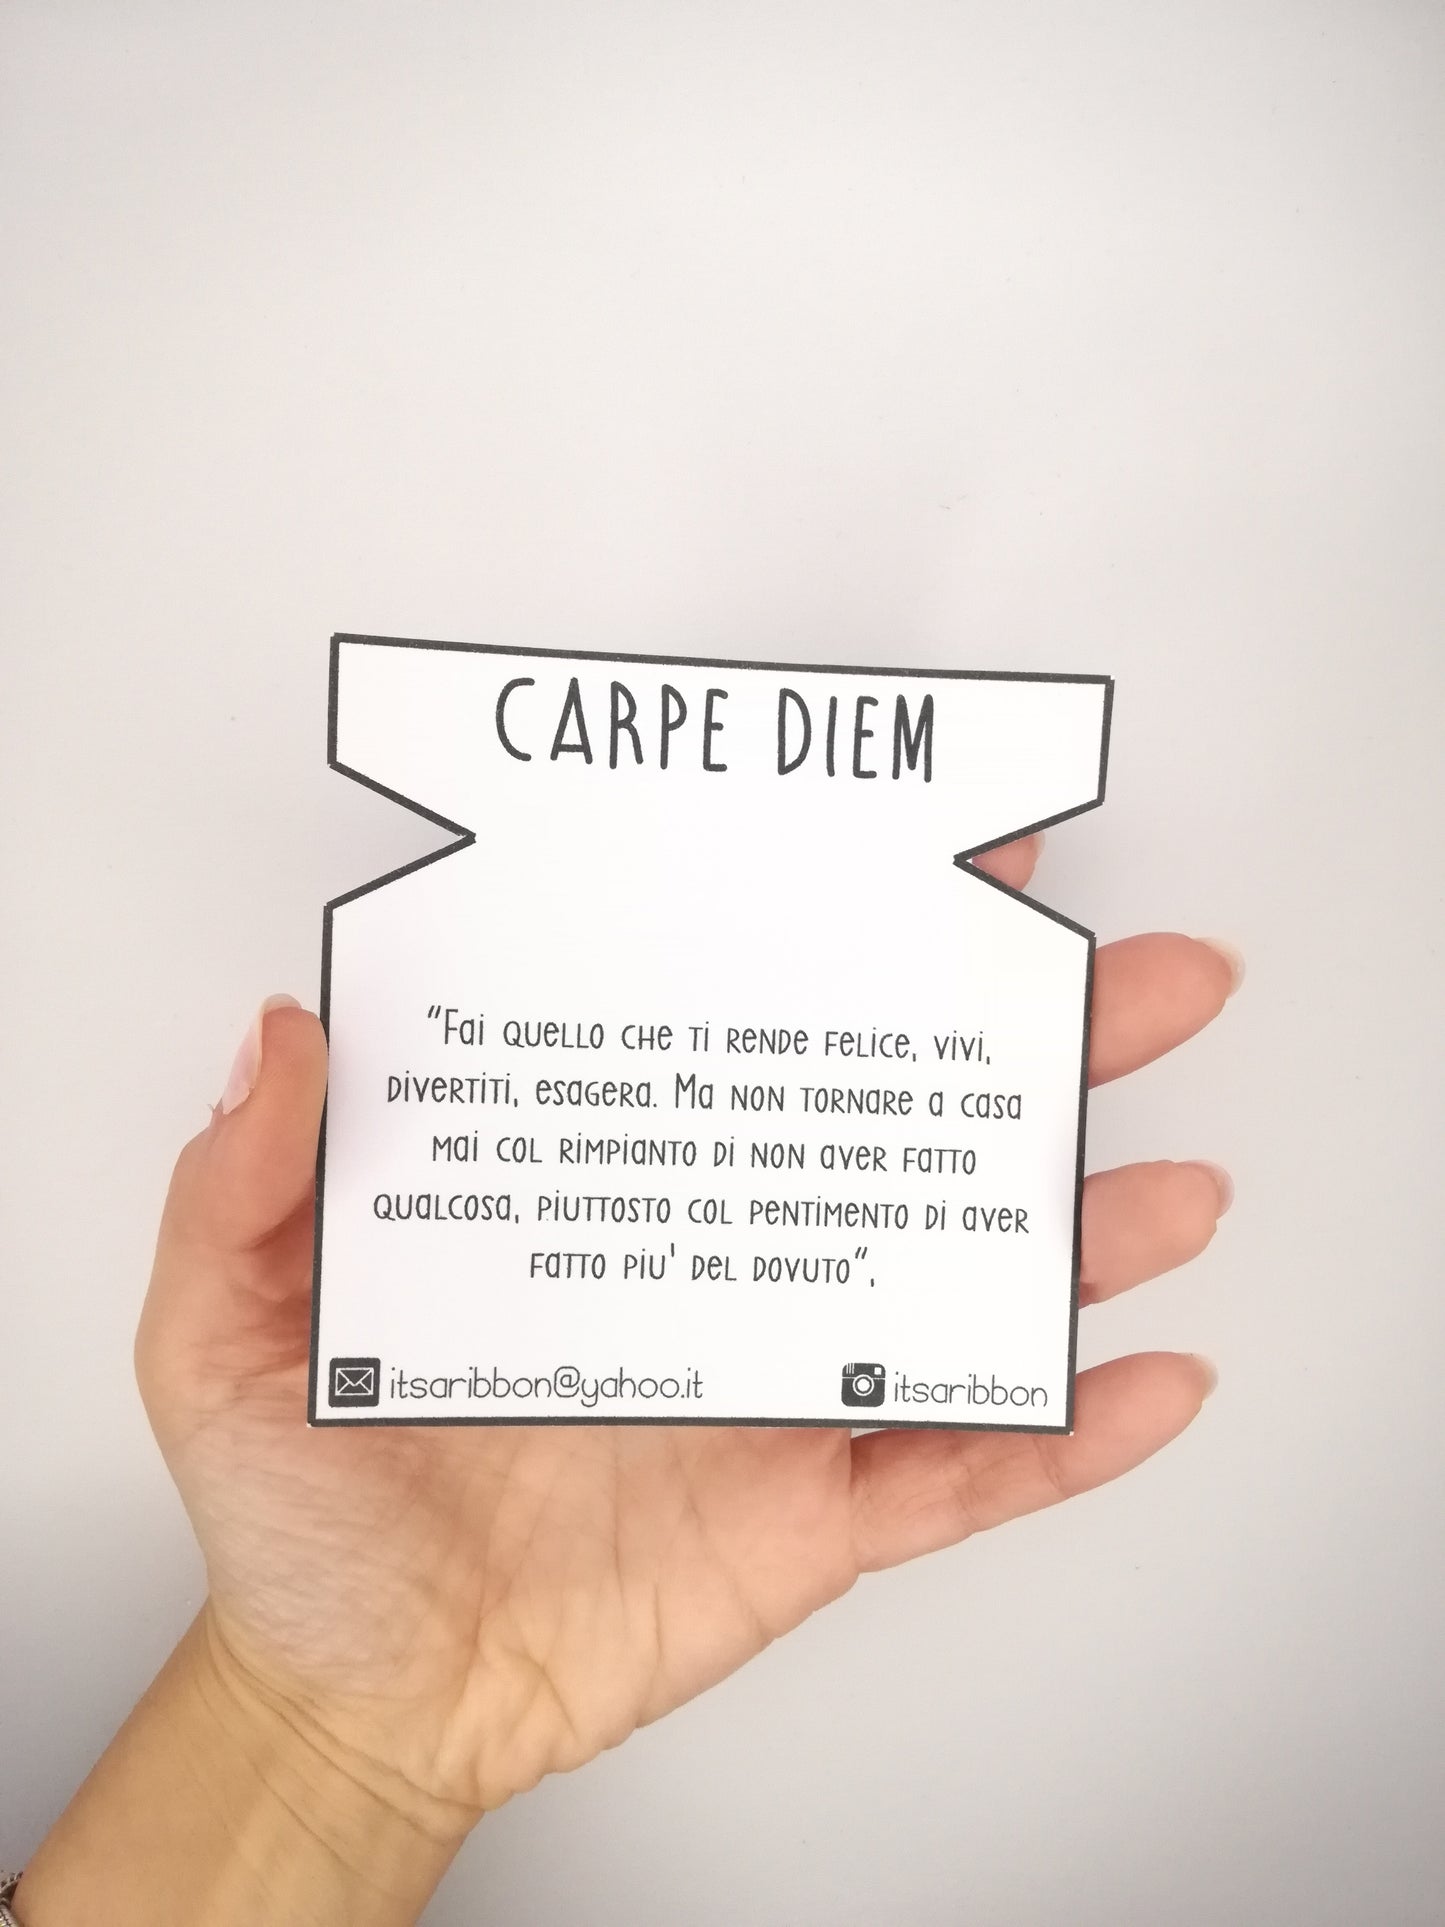 CARPE DIEM
"Fai quello che ti rende felice, vivi,
divertiti, esagera. Ma non tornare a casa
mai col rimpianto di non aver fatto
qualcosa, piuttosto col pentimento di aver
fatto piu' del dovuto".
itsaribbon@yahoo.it
itsaribbon